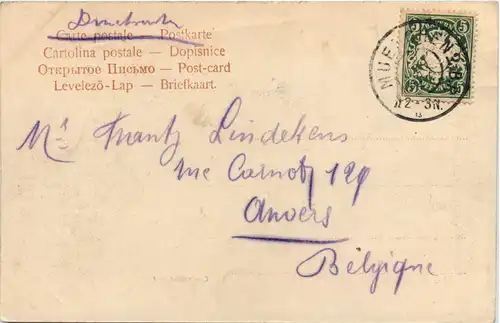 Drucksache
Carte postale — Postkarte
Cartolina postale — Dopisnice
Открытое Письмо — Post-card
Levelező-Lap — Briefkaart.
5 5
MUENCHEN
N 2-3N.
Mr Frantz Lindekens
rue Carnotz 129
Anvers
Belgique